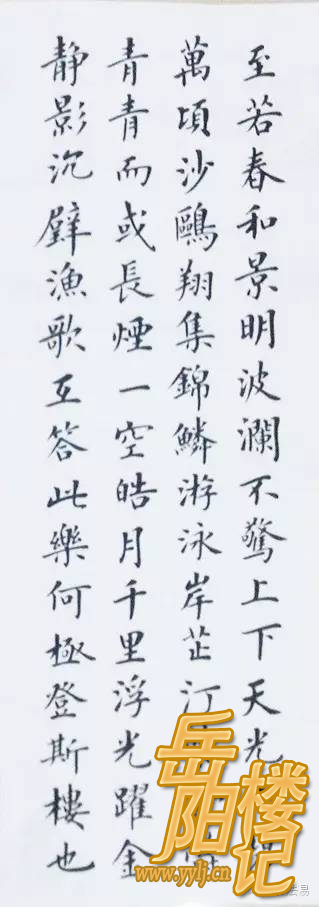 至若春和景明波瀾不驚上下天光
萬頃沙鷗翔集錦鱗游泳岸芷汀
青青而或長煙一空皓月千里浮光躍金
静影沉璧漁歌互答此樂何極登斯樓也
岳阳楼记
www.yylj.cn